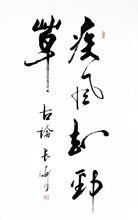 疾风知勁
草 古論